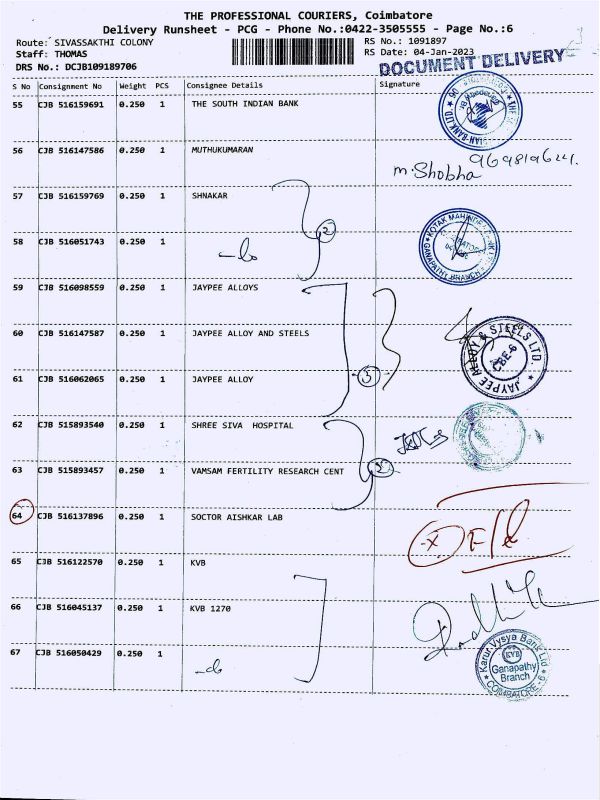 THE PROFESSIONAL COURIERS, Coimbatore
Delivery Runsheet - PCG - Phone No.:0422-3505555 - Page No.:6
Route: SIVASSAKTHI COLONY RS No.: 1091897
Staff: THOMAS RS Date: 04-Jan-2023
DRS No.: DCJB109189706 DOCUMENT DELIVERY
S No Consignment No Weight PCS Consignee Details Signature
55 CJB 516159691 0.250 1 THE SOUTH INDIAN BANK
56 CJB 516147586 0.250 1 MUTHUKUMARAN
m. Shobha
57 CJB 516159769 0.250 1 SHNAKAR
2
58 CJB 516051743 0.250 1
KOTAK MAHINDRA BANK
GANAPATHY BRANCH
59 CJB 516098559 0.250 1 JAYPEE ALLOYS
60 CJB 516147587 0.250 1 JAYPEE ALLOY AND STEELS
JAYPEE ALLOY & STEELS LTD.
CBE-6
61 CJB 516062065 0.250 1 JAYPEE ALLOY
3
62 CJB 515893540 0.250 1 SHREE SIVA HOSPITAL
63 CJB 515893457 0.250 1 VAMSAM FERTILITY RESEARCH CENT
2
64 CJB 516137896 0.250 1 SOCTOR AISHKAR LAB
65 CJB 516122570 0.250 1 KVB
66 CJB 516045137 0.250 1 KVB 1270
67 CJB 516050429 0.250 1
Karur Vysya Bank Ltd
KVB
Ganapathy
Branch
COIMBATORE - 6